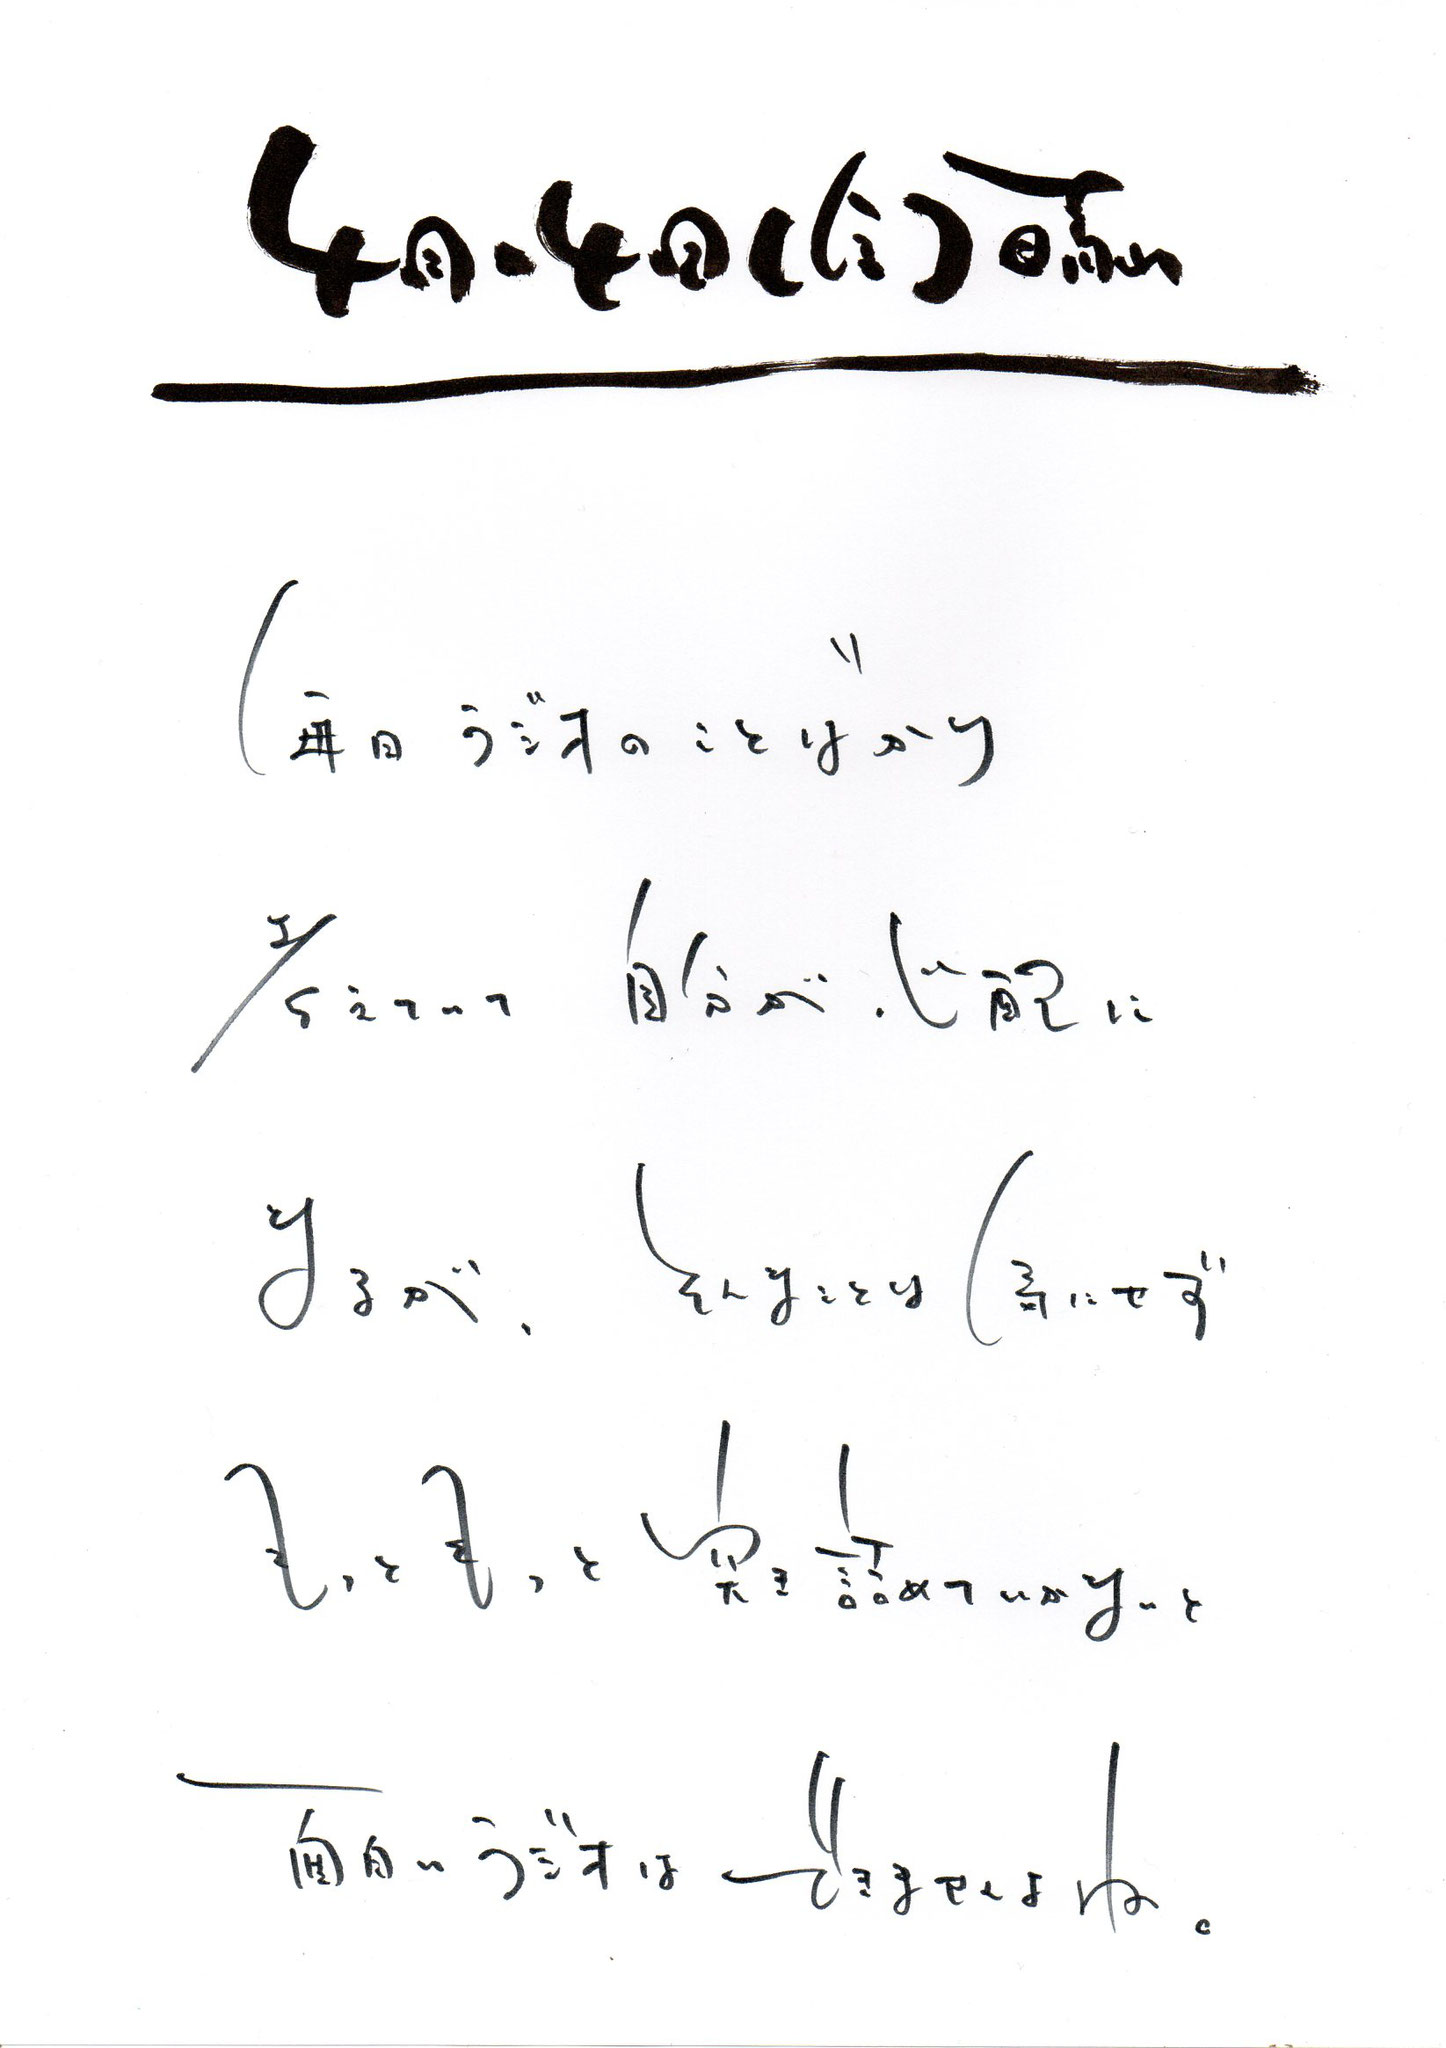 4月・4日(金)
毎日ラジオのことばかり
考えていて 自分が心配に
なるが、そんなことは気にせず
もっともっと突き詰めていかないと
面白いラジオはできませんよね。